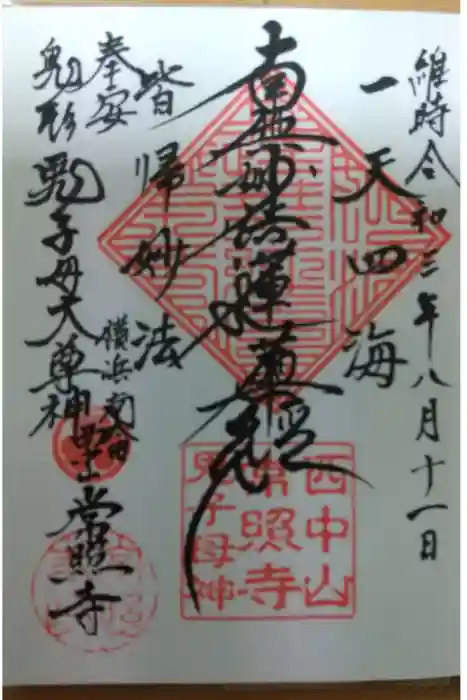 維時令和三年八月十一日
一天四海
南無妙法蓮華経
皆帰妙法
奉安
鬼形鬼子母大尊神
横浜南太田
常照寺
西中山
常照寺
鬼子母神